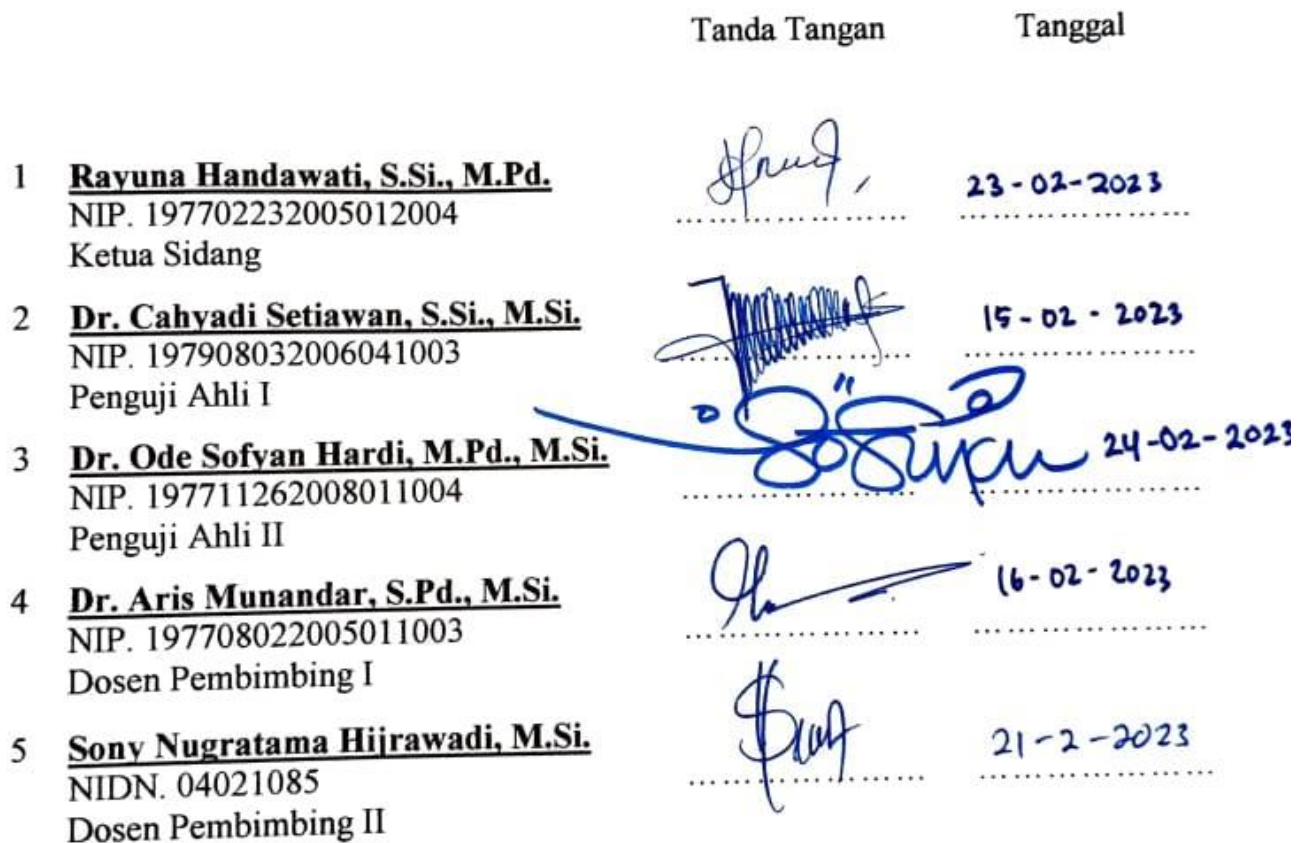 Tanda Tangan Tanggal
1 Rayuna Handawati, S.Si., M.Pd.
NIP. 197702232005012004
Ketua Sidang
23-02-2023
2 Dr. Cahyadi Setiawan, S.Si., M.Si.
NIP. 197908032006041003
Penguji Ahli I
15-02-2023
3 Dr. Ode Sofyan Hardi, M.Pd., M.Si.
NIP. 197711262008011004
Penguji Ahli II
24-02-2023
4 Dr. Aris Munandar, S.Pd., M.Si.
NIP. 197708022005011003
Dosen Pembimbing I
16-02-2023
5 Sony Nugratama Hijrawadi, M.Si.
NIDN. 04021085
Dosen Pembimbing II
21-2-2023